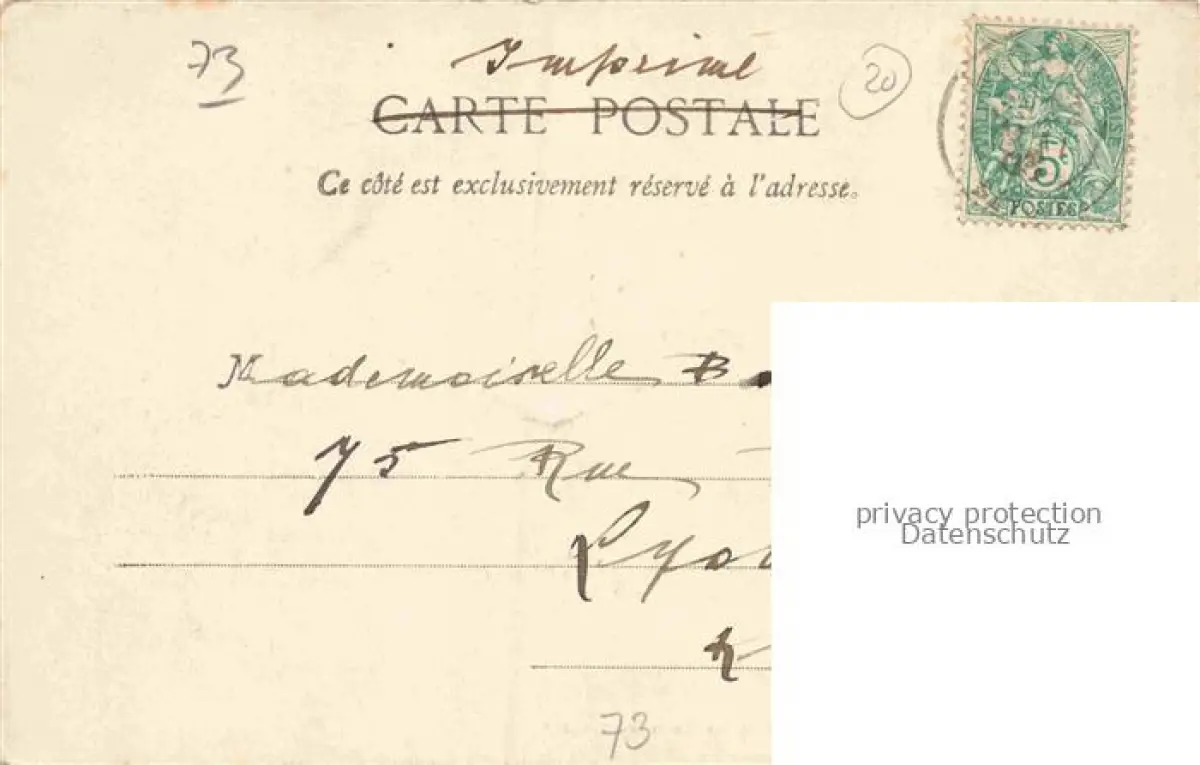 73
Imprimé
20
CARTE POSTALE
Ce côté est exclusivement réservé à l'adresse.
5c
POSTES
Mademoiselle B
75 Rue
Lyon
privacy protection
Datenschutz
73